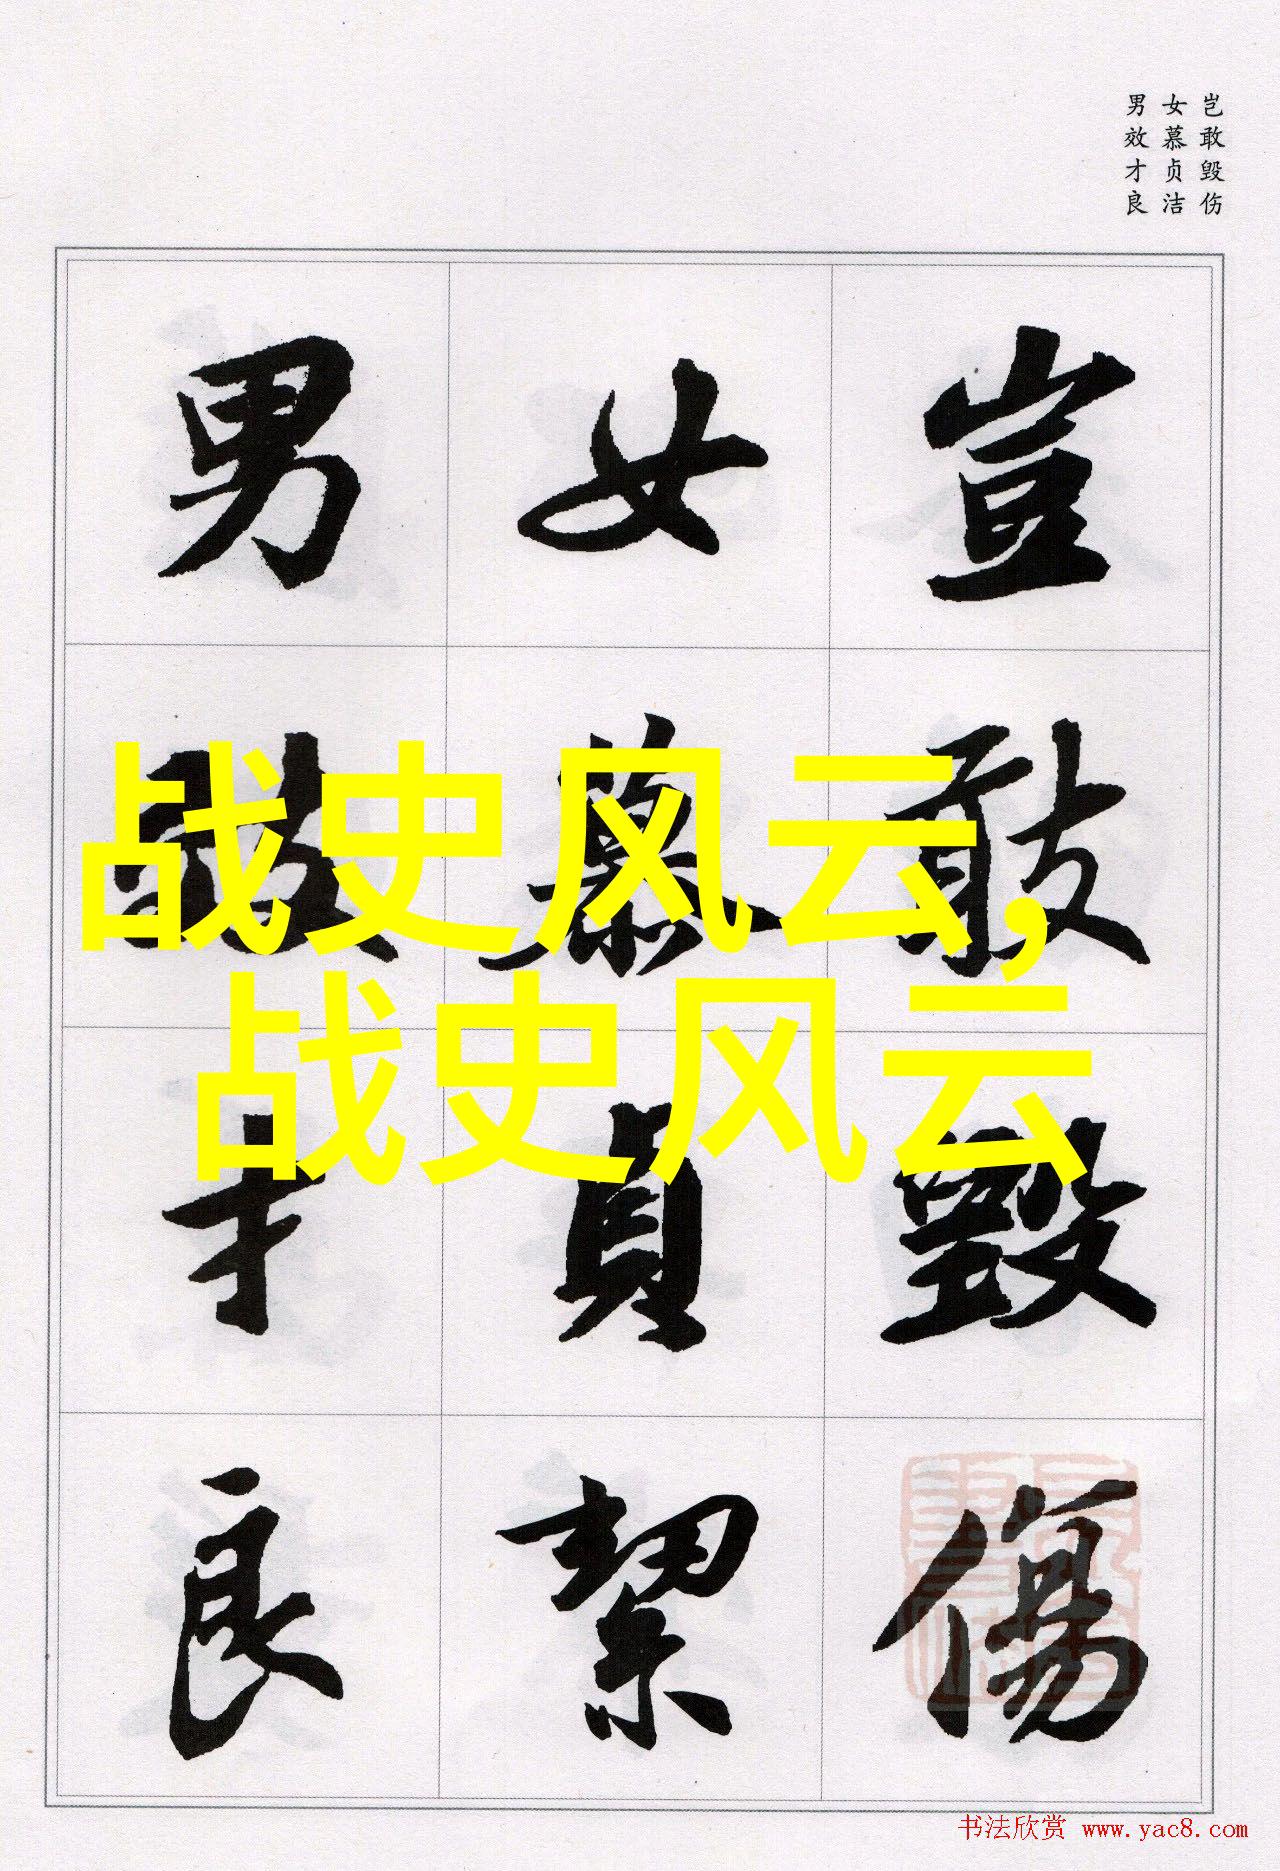 岂敢毁伤
女慕贞洁
男效才良
豈敢毀傷
女慕貞絜
男效才良
战史风云,
战史风云
书法欣赏 www.yac8.com